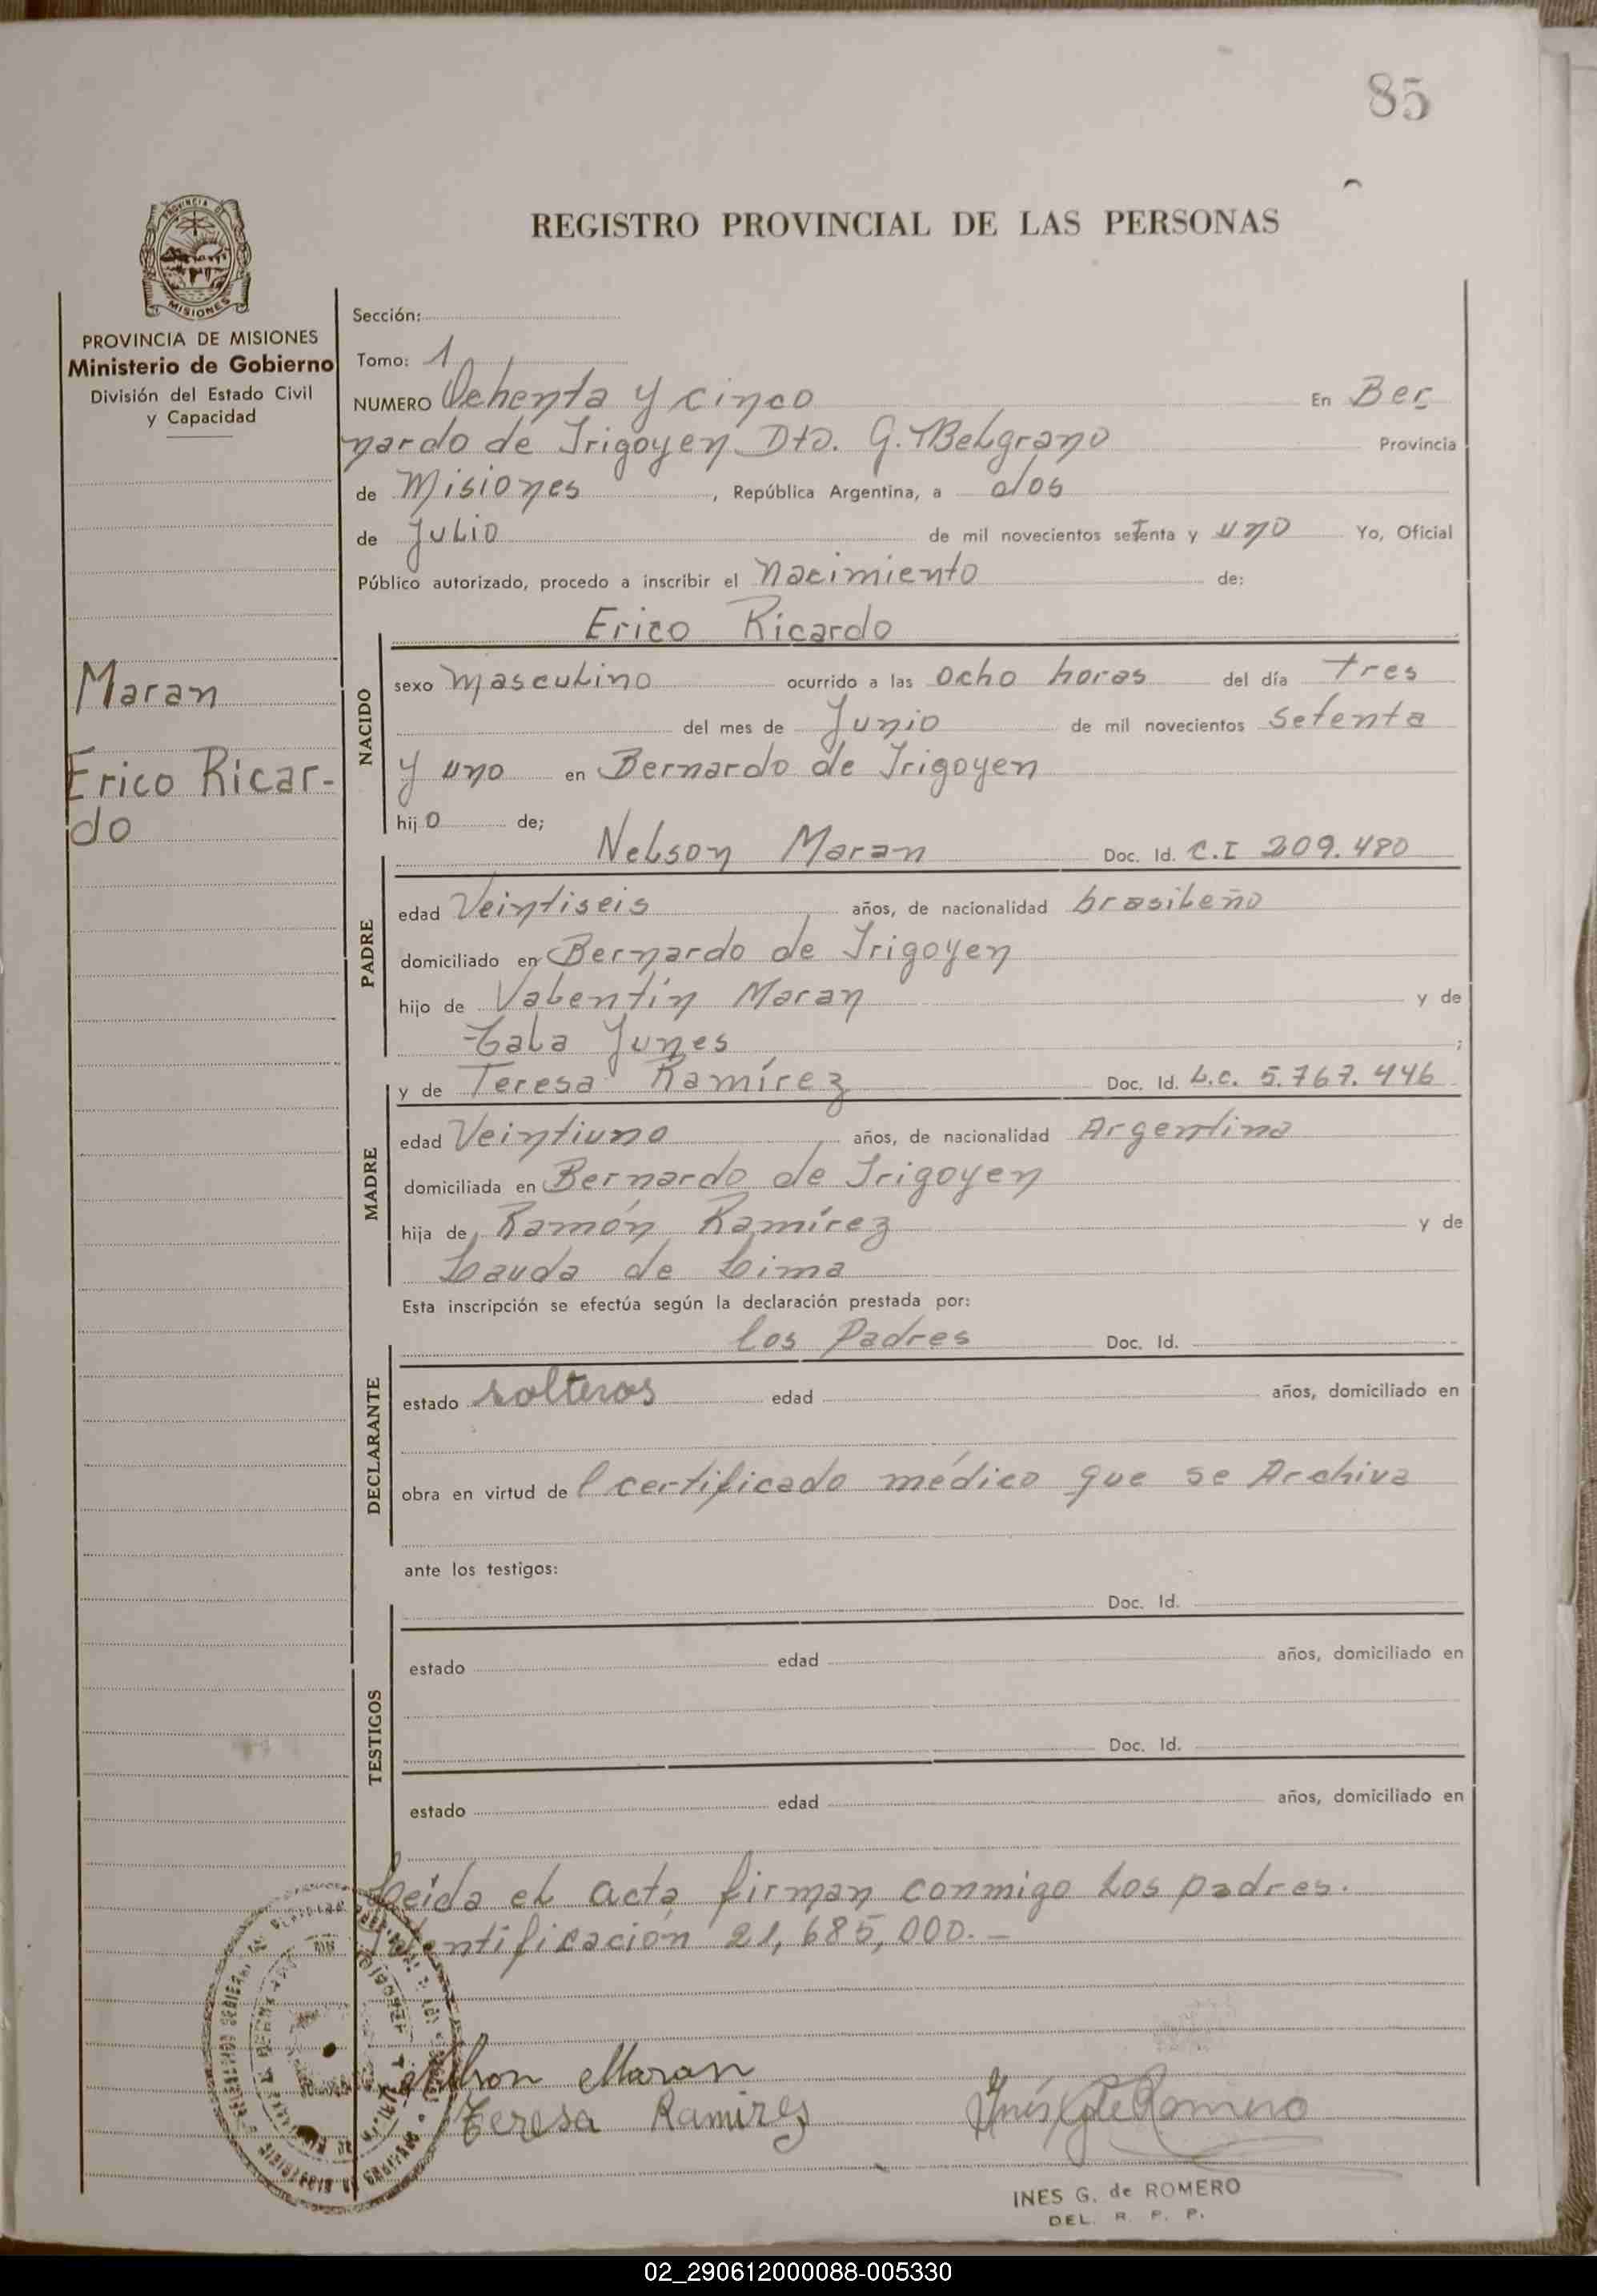 85
REGISTRO PROVINCIAL DE LAS PERSONAS
PROVINCIA DE
MISIONES
PROVINCIA DE MISIONES
Ministerio de Gobierno
División del Estado Civil
y Capacidad
Maran
Erico Ricar-
do
Sección:
Tomo: 1
NUMERO Ochenta y cinco En Ber
nardo de Irigoyen Dto. G. M Belgrano Provincia
de Misiones, República Argentina, a dos
de Julio de mil novecientos setenta y uno Yo, Oficial
Público autorizado, procedo a inscribir el Nacimiento de:
Erico Ricardo
NACIDO
sexo masculino ocurrido a las ocho horas del día tres
del mes de Junio de mil novecientos setenta
y uno en Bernardo de Irigoyen
hijo de;
Nelson Maran Doc. Id. C.I 209.480
PADRE
edad Veintiseis años, de nacionalidad brasileño
domiciliado en Bernardo de Irigoyen
hijo de Valentín Maran y de
Tala Junes;
y de Teresa Ramírez Doc. Id. L.C. 5.767.446
MADRE
edad Veintiuno años, de nacionalidad Argentina
domiciliada en Bernardo de Irigoyen
hija de Ramón Ramírez y de
Lauda de Lima
Esta inscripción se efectúa según la declaración prestada por:
los Padres Doc. Id.
DECLARANTE
estado solteros edad años, domiciliado en
obra en virtud del certificado médico que se Archiva
ante los testigos:
Doc. Id.
TESTIGOS
estado edad años, domiciliado en
Doc. Id.
estado edad años, domiciliado en
Leída el acta firman conmigo los padres.
Identificación 21,685,000.-
Nelson Maran
Teresa Ramirez
Inés G de Romero
INES G. de ROMERO
DEL. R. P. P.
02_290612000088-005330